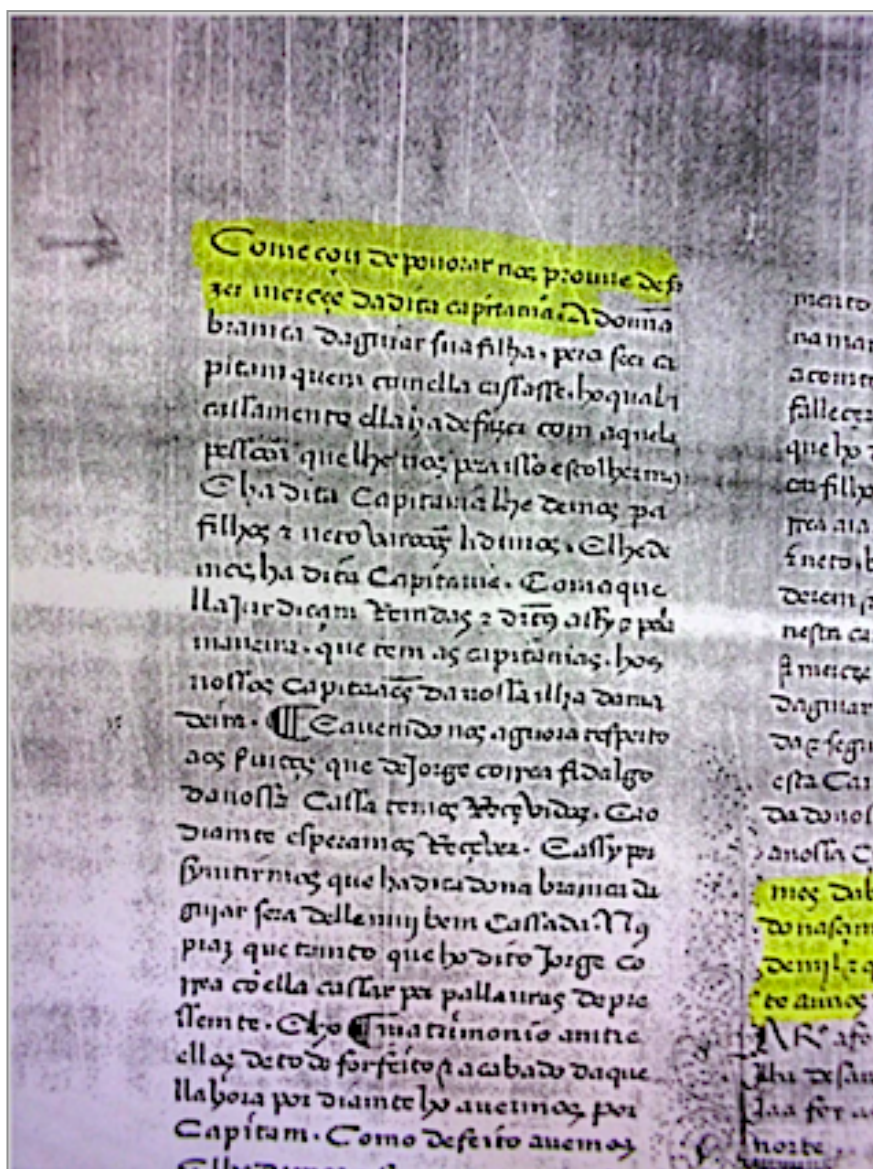 Começou de pouorar nos prouue de fa
zer merçee da dita capitania. A donna
branca daguiar sua filha. pera seer ca
pitam quem com ella cassasse. ho qual
cassamento ella ha de fazer com aquela
pessoa que lhe nos pera isso escolhermos
E ha dita Capitania lhe demos pa
filhos z neto baroões lidimos. E lhe de
mos ha dita Capitania. Com aque
lla jurdiçam Remdas z dirtos assy z pola
maneira. que tem as capitanias. hos
nossos Capitaães da nossa ilha dama
deira. E avemdo nos aguora respeito
aos seruiços que de Jorge correa fidalgo
da nossa Cassa temos Reçebidos. E ao
diamte esperamos Reçeber. E assy por
symtirmos que ha dita dona branca da
guiar sera delle muy bem Cassada. Nos
praz que tamto que ho dito Jorge Co
rrea cõ ella cassar per pallauras de pre
ssemte. E ho matrimonio amtre
elles de todo for feito z acabado daque
lla hora por diamte ho avemos por
Capitam. Como de feito avemos
E lhe
mento
na mar
acomte
falleçer
que ho d
ou filho
neto. b
derem
nesta ca
merçee
daguiar
das segu
esta Car
da do nos
a nossa C
mos dab
do nasçim
de mjl z q
to annos
lha de san
laa for
norte